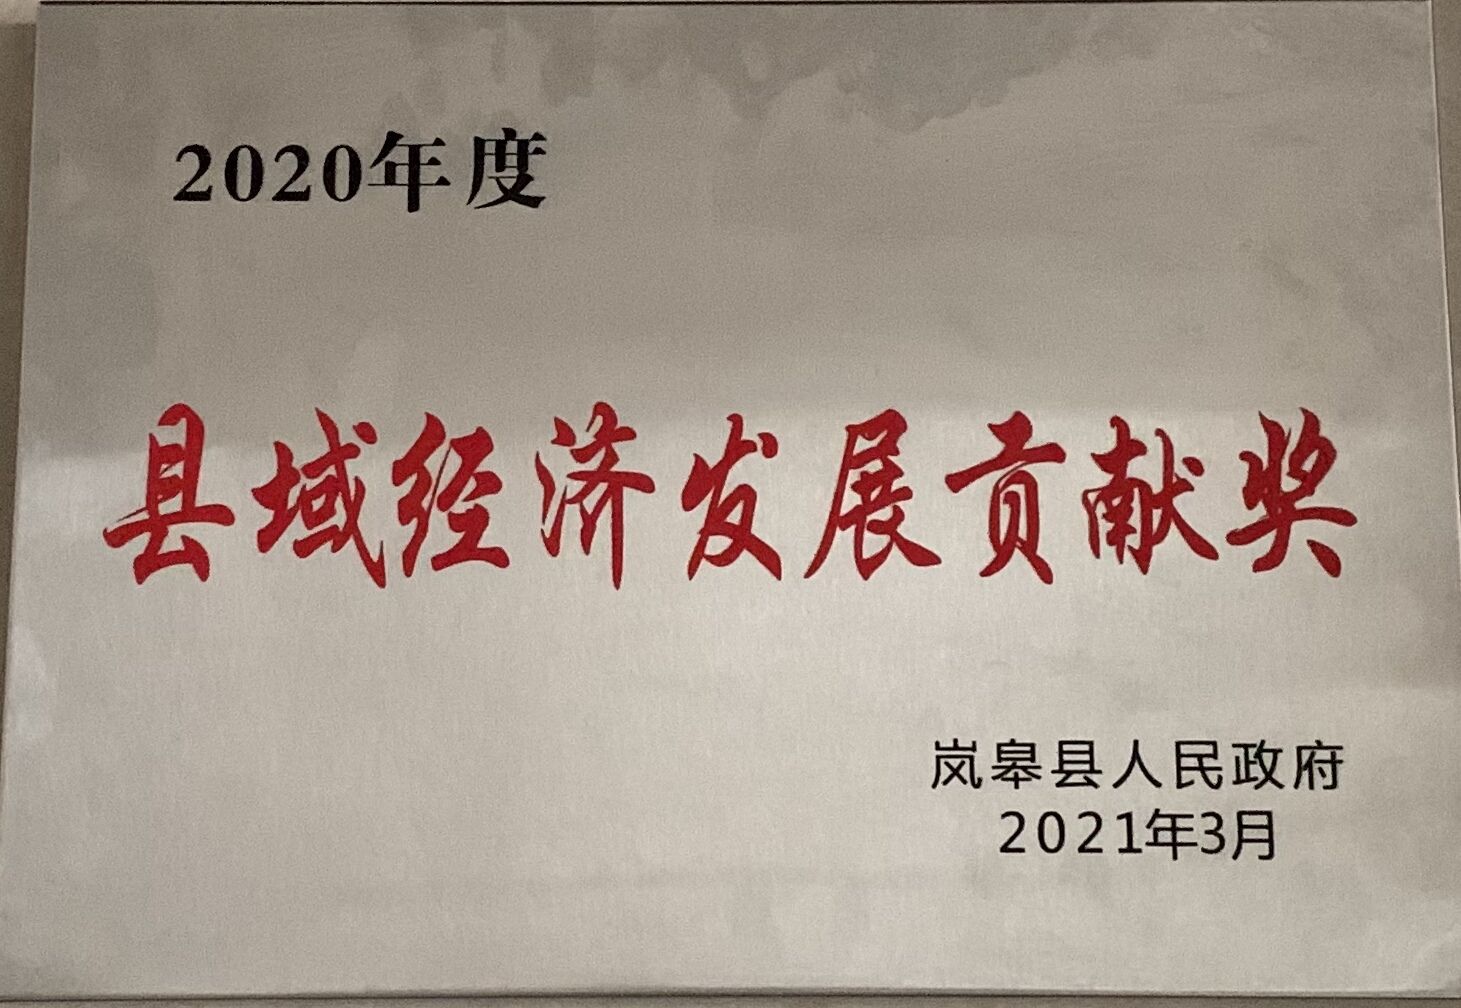 2020年度
县域经济发展贡献奖
岚皋县人民政府
2021年3月